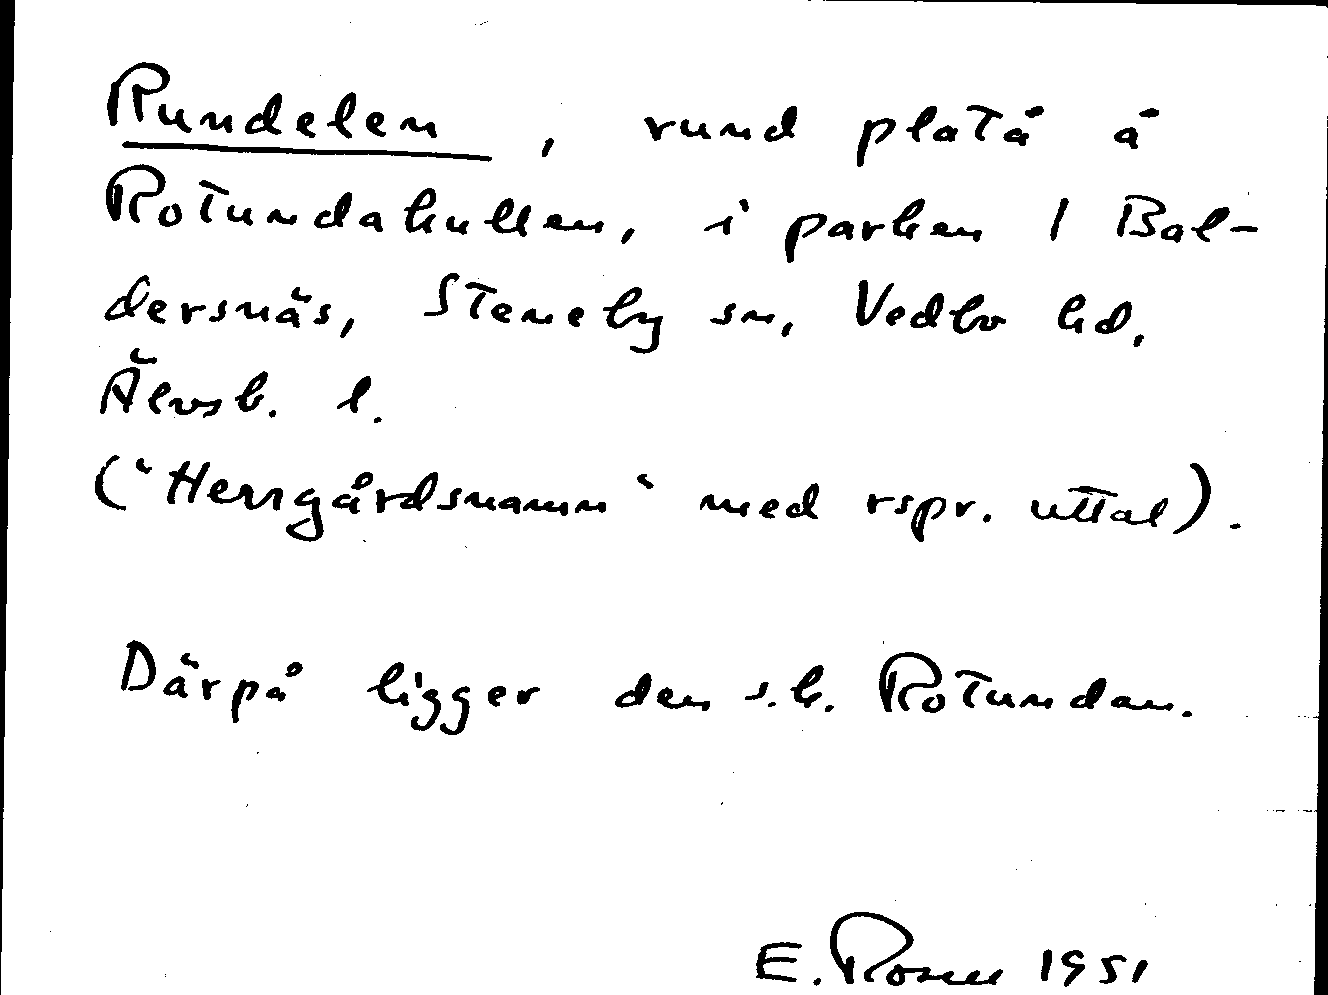 Rundelen, rund platå å
Rotundakullen, i parken / Bal-
dersnäs, Steneby sn, Vedbo hd,
Älvsb. l.
("Herrgårdsnamn" med rspr. uttal).
Därpå ligger den s.k. Rotundan.
E. Rosell 1951